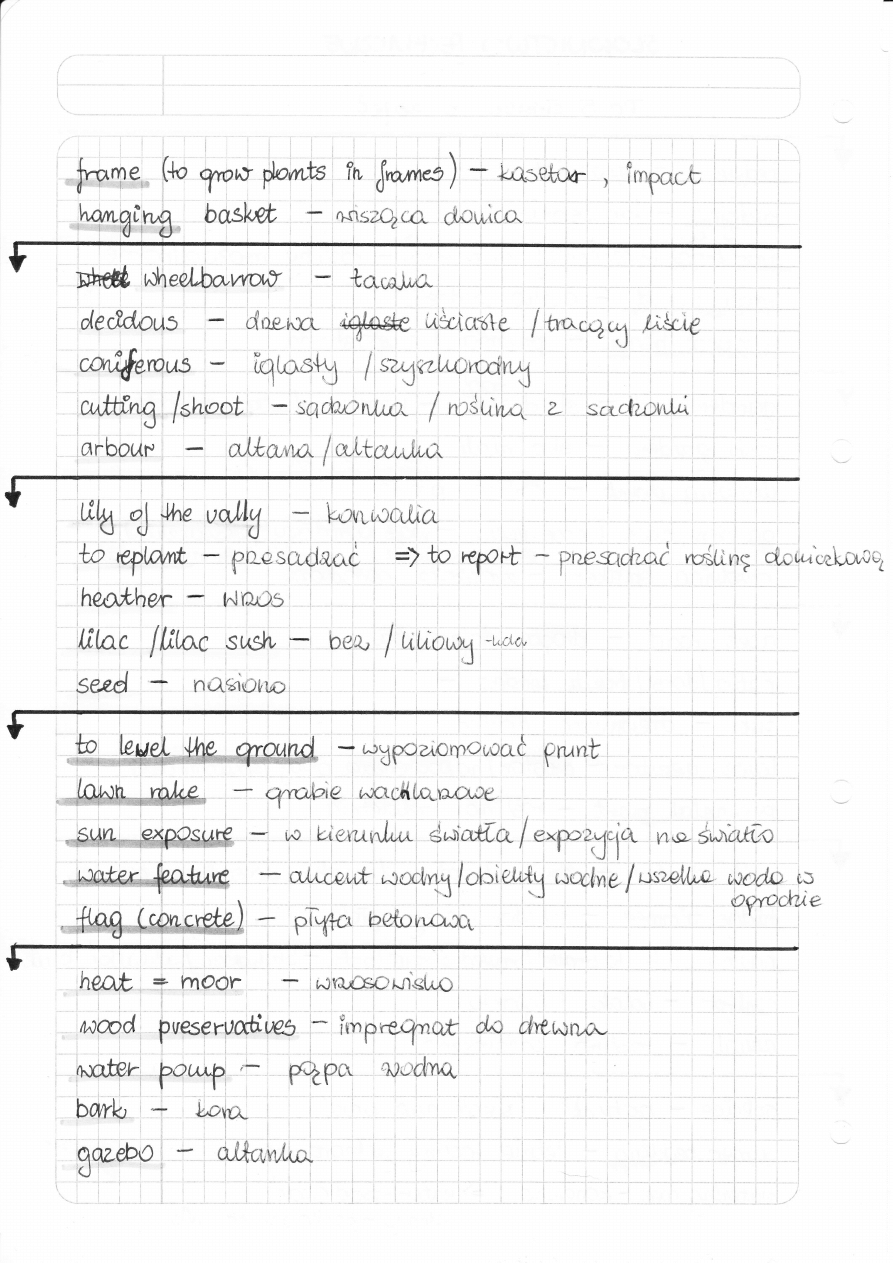 frame (to grow plants in frames) – kaseton, impact
hanging basket – wisząca donica
wheelbarrow – taczka
decidous – drzewa iglaste liściaste / tracący liście
coniferous – iglasty / szyszkorodny
cutting /shoot – sądzonka / roślina z sadzonki
arbour – altana /altanka
lily of the vally – konwalia
to replant – przesadzać => to report – przesadzać roślinę doniczkową
heather – wrzos
lilac /lilac sush – bez / liliowy
seed – nasiono
to level the ground – wypoziomować grunt
lawn rake – grabie wachlarzowe
sun exposure – w kierunku światła / expozycja na światło
water feature – akcent wodny/obiekty wodne/wszelka woda w
ogrodzie
flag (concrete) – płyta betonowa
heat = moor – wrzosowisko
wood preservatives – impregnat do drewna
water pomp – pąpa wodna
bark – kora
gazebo – altanka